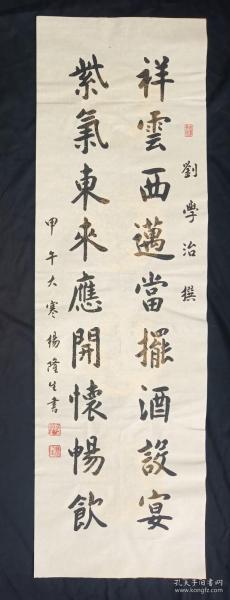 劉學治撰
祥雲西邁當擺酒設宴
紫氣東來應開懷暢飲
甲午大寒楊隆生書
孔夫子旧书网